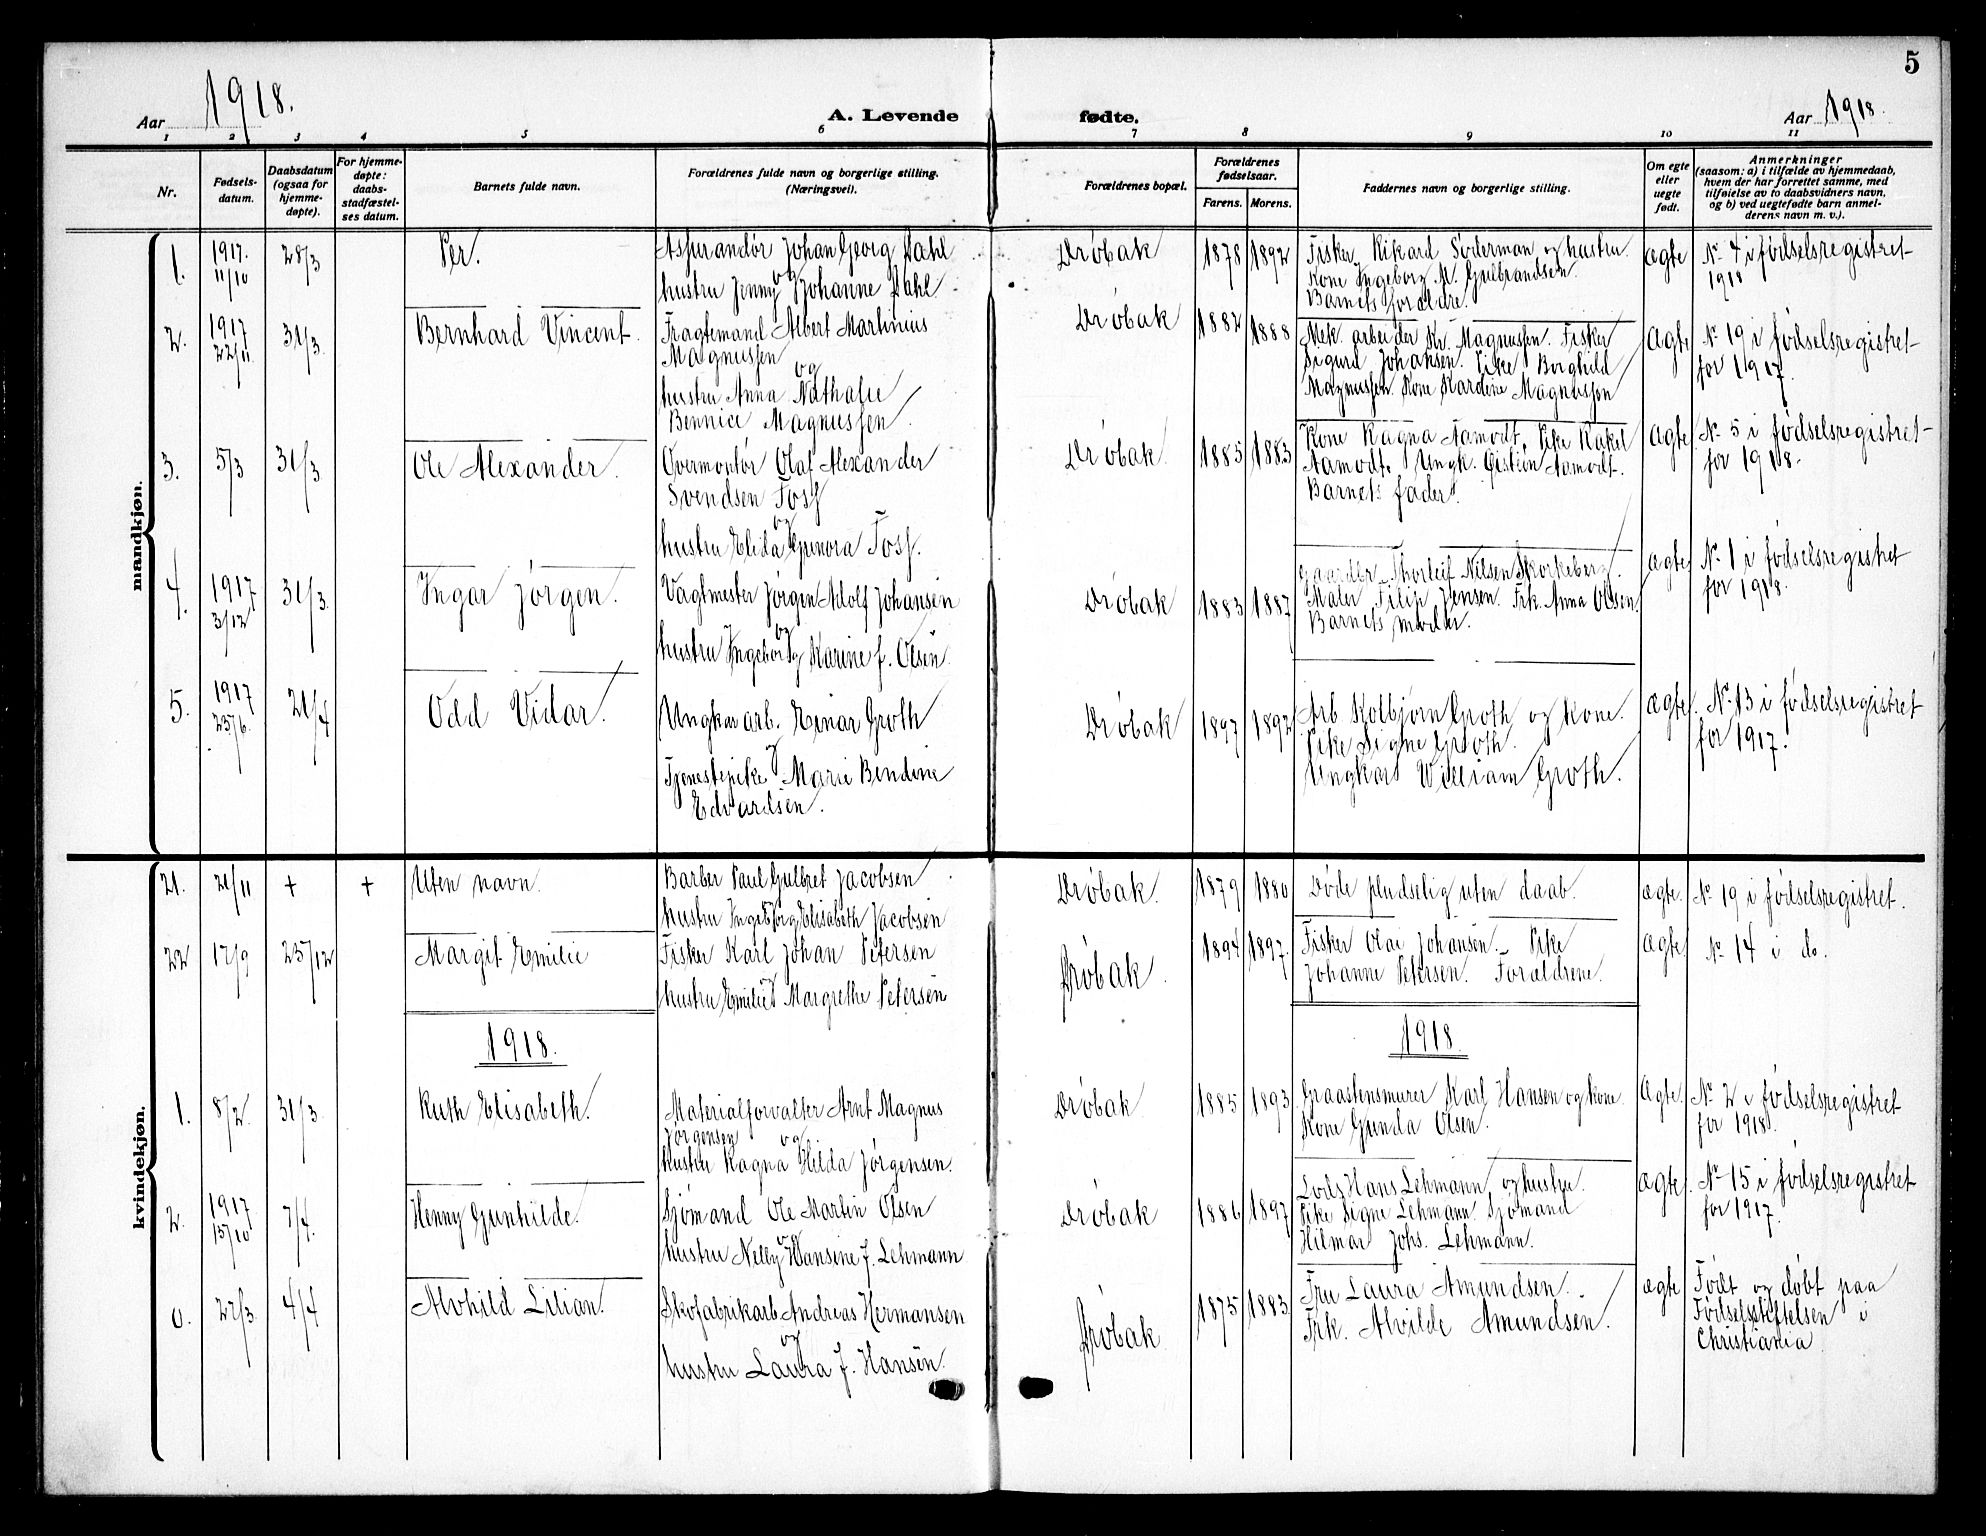 5
Aar 1918.
A. Levende fødte.
Aar 1918.
1 2 3 4 5 6 7 8 9 10 11
Nr.
Fødsels-
datum.
Daabsdatum
(ogsaa for
hjemme-
døpte).
For hjemme-
døpte:
daabs-
stadfæstel-
ses datum.
Barnets fulde navn.
Forældrenes fulde navn og borgerlige stilling.
(Næringsvei).
Forældrenes bopæl.
Forældrenes
fødselsaar.
Farens. Morens.
Faddernes navn og borgerlige stilling.
Om egte
eller
uegte
født.
Anmerkninger
(saasom: a) i tilfælde av hjemmedaab,
hvem der har forrettet samme, med
tilføielse av to daabsvidners navn,
og b) ved uegtefødte barn anmel-
derens navn m. v.).
mandkjøn.
1.
1917.
11/10
28/3
Per.
Assurandør Johan Georg Dahl
og
hustru Jenny Johanne Dahl.
Drøbak
1878 1892
Fisker Rikard Søderman og hustru.
Kone Ingeborg M. Gulbrandsen.
Barnets forældre.
Ægte
No 4 i fødselsregistret
1918
2.
1917
22/11
31/3
Bernhard Vincent.
Fragtemand Albert Martinius
Magnussen
og
hustru Anna Nathalie
Bennice Magnussen.
Drøbak
1882 1888
Mek. arbeider Kr. Magnussen. Fisker
Sigurd Johansen. Pike Borghild
Magnussen. Kone Kardine Magnussen
Ægte
No 19 i fødselsregistret
for 1917.
3.
5/3
31/3
Ole Alexander.
Overmontør Olaf Alexander
Svendsen Foss
og
hustru Elida Gunora Foss.
Drøbak
1885 1883
Kone Ragna Aamodt. Pike Rakel
Aamodt. Ungk. Øistein Aamodt.
Barnets fader.
Ægte
No 5 i fødselsregistret
for 1918.
4.
1917
3/12
31/3
Ingar Jørgen.
Vagtmester Jørgen Adolf Johansen
og
hustru Ingeborg Karine f. Olsen.
Drøbak
1883 1887
Gaardbr. Thorleif Nilsen Skorkeberg.
Maler Filip Jensen. Frk. Anna Olsen.
Barnets moder.
Ægte
No 1 i fødselsregistret
for 1918.
5.
1917
23/6.
21/4
Odd Vidar.
Ungkar arb. Einar Groth
og
Tjenestepike Marie Bendine
Edvardsen.
Drøbak
1897 1892
Arb Kolbjørn Groth og kone.
Pike Signe Groth.
Ungkar William Groth.
Ægte.
No 13 i fødselsregistret
for 1917.
kvindekjøn.
21.
21/11
+ +
Uten navn.
Barber Paul Gulbret Jacobsen
hustru Ingeborg Elisabeth Jacobsen
Drøbak.
1879 1880
Døde pludselig uten daab.
Ægte.
No 19 i fødselsregistret.
22
17/9
25/12
Margit Emilie
Fisker Karl Johan Petersen
hustru Emilie Margrethe Petersen
Drøbak.
1894 1897.
Fisker Olai Johansen. Pike
Johanne Petersen. Forældrene.
Ægte
No 14 i do.
1918.
1918.
1.
8/2
31/3
Ruth Elisabeth.
Materialforvalter Arnt Magnus
Jørgensen
og
hustru Ragna Hilda Jørgensen.
Drøbak
1885 1893
Graastensmurer Karl Hansen og kone.
Kone Gunda Olsen.
Ægte.
No 2 i fødselsregistret
for 1918.
2.
1917
15/10
7/4
Henny Gunhilde.
Sjømand Ole Martin Olsen
og
hustru Nelly Hansine f. Lehmann
Drøbak
1886 1897
Lods Hans Lehmann og hustru.
Pike Signe Lehmann. Sjømand
Hilmar Johs. Lehmann.
Ægte.
No 15 i fødselsregistret
for 1917.
0.
22/3
4/4
Alvhild Lilian.
Skofabrikarb. Andreas Hermansen
og
hustru Laura f. Hansen.
Drøbak
1875 1883
Fru Laura Amundsen.
Frk. Alvilde Amundsen.
Ægte
Født og døbt paa
Fødselsstiftelsen i
Christiania